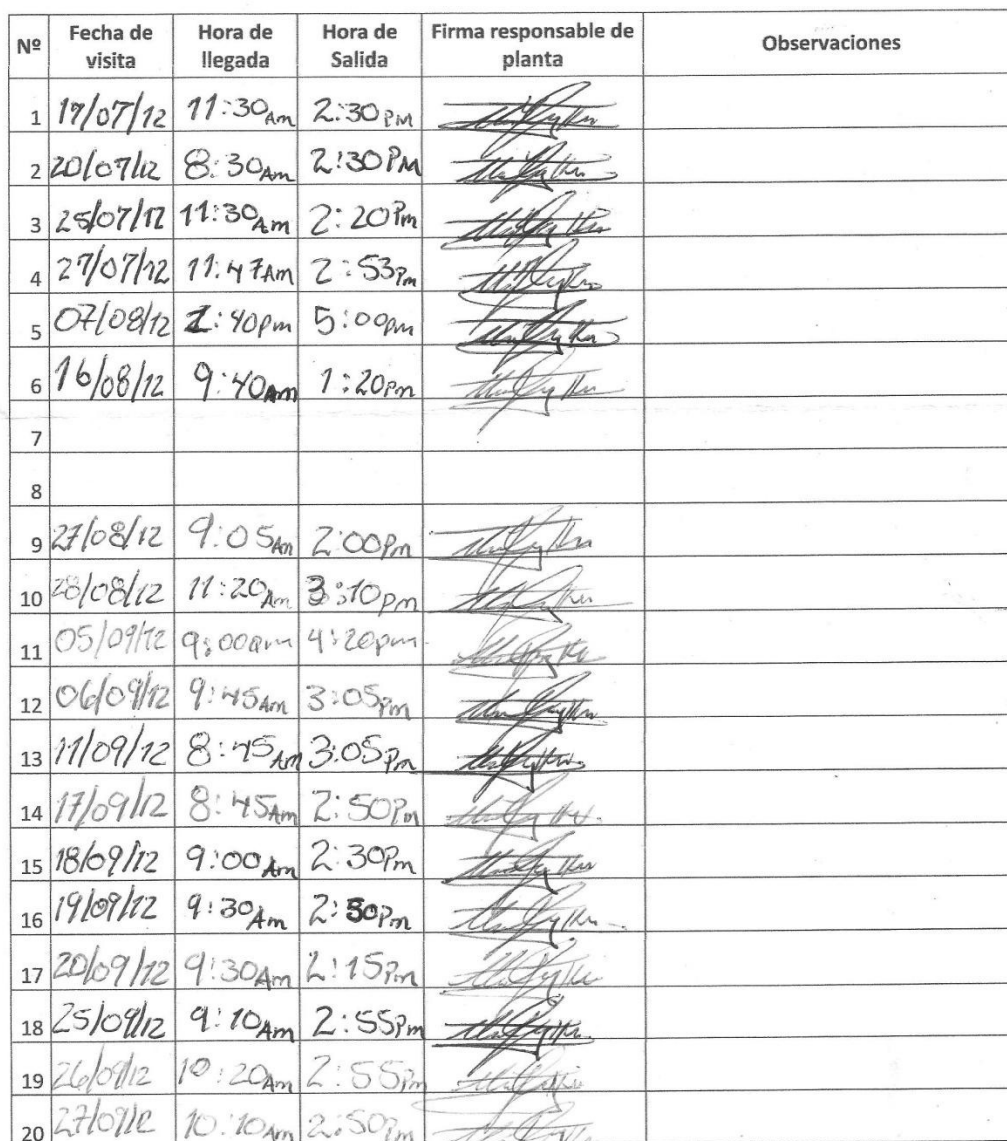 Nº Fecha de visita Hora de llegada Hora de Salida Firma responsable de planta Observaciones
1 17/07/12 11:30Am 2:30PM
2 20/07/12 8:30Am 2:30PM
3 25/07/12 11:30Am 2:20Pm
4 27/07/12 11:47Am 2:53Pm
5 07/08/12 :40pm 5:00pm
6 16/08/12 9:40Am 1:20pm
7
8
9 27/08/12 9:05Am 2:00Pm
10 28/08/12 11:20Am 3:10pm
11 05/09/12 9:00am 4:20pm
12 06/09/12 9:45Am 3:05Pm
13 11/09/12 8:45Am 3:05Pm
14 17/09/12 8:45Am 2:50Pm
15 18/09/12 9:00Am 2:30Pm
16 19/09/12 9:30Am 2:50Pm
17 20/09/12 9:30Am 2:15Pm
18 25/09/12 9:10Am 2:55Pm
19 26/09/12 10:20Am 2:55Pm
20 27/09/12 10:10Am 2:50Pm